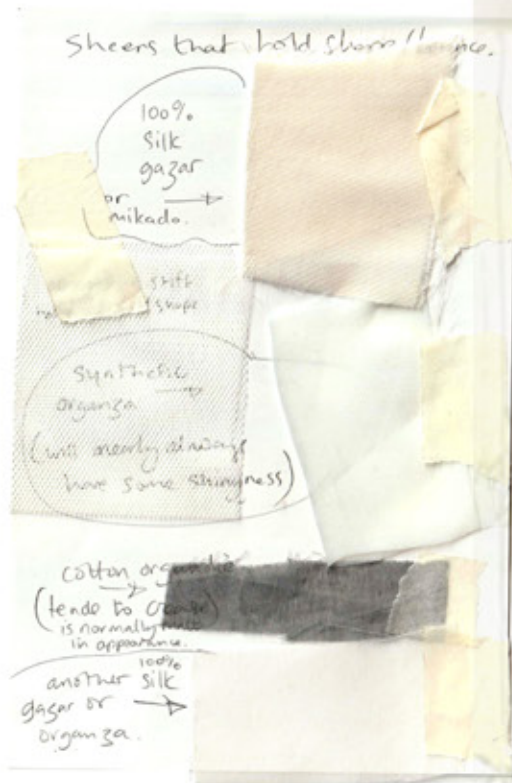 Sheers that hold
100%
silk
gazar
or
mikado.
stiff
shape
synthetic
organza
(will nearly always
have some shinyness)
cotton
(tends to
is normally
in appearance.
100%
another silk
gazar or
organza.